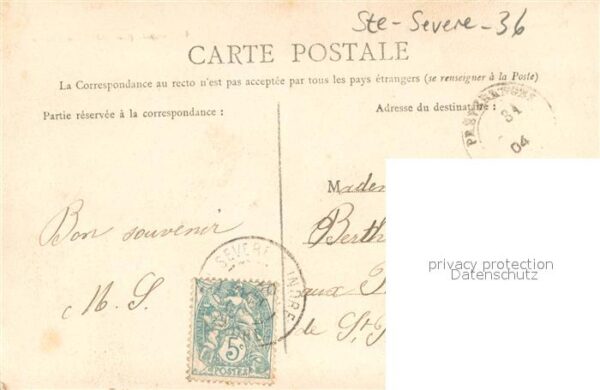 Ste-Severe-36
CARTE POSTALE
La Correspondance au recto n'est pas acceptée par tous les pays étrangers (se renseigner à la Poste)
Partie réservée à la correspondance :
Adresse du destinataire :
04
Madem
Berth
aux
de St
Bon souvenir
M. S.
SEVERE
INDRE
5c
POSTES
privacy protection
Datenschutz